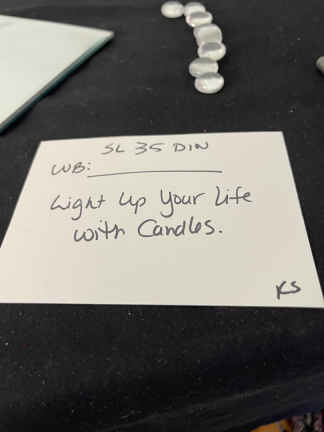 SL 35 DIN
WB:
Light Up Your Life
with Candles.
KS